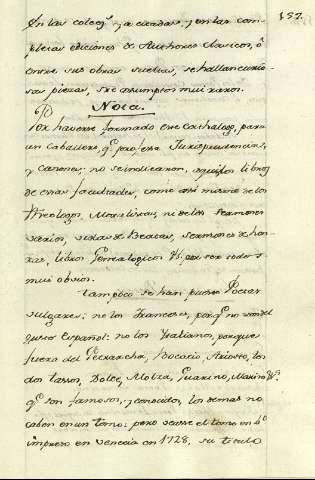 157.
En las colecç.s ya citadas, y en las com-
pletas ediciones de Authores clasicos, ô
entre sus obras sueltas, se hallan curio-
sas piezas, sre asumptos mui raros.
Nota.
Por haverse formado este cathalogo, para
un Caballero, q.e professa Jurisprudencias,
y Canones; no se indicaron, aquellos libros
de essas facultades, como assi mismo de los
Theologos, Moralistas, ni de los Sermones
varios, vidas de Beatas, sermones de hon-
ras, libros Genealogicos &c, por ser todos
mui obvios.
Tampoco se han puesto Poetas
vulgares: ne los Franceses, porq.e no son del
gusto Español: no los Italianos, porque
fuera del Petrarcha, Bocacio, Ariosto, los
dos Tassos, Dolce, Molza, Guarino, Marino &c.
q.e son famosos, y conocidos, los demas no
caben en un tomo: pero vease el tomo en 4.o
impreso en Venecia en 1728, su titulo